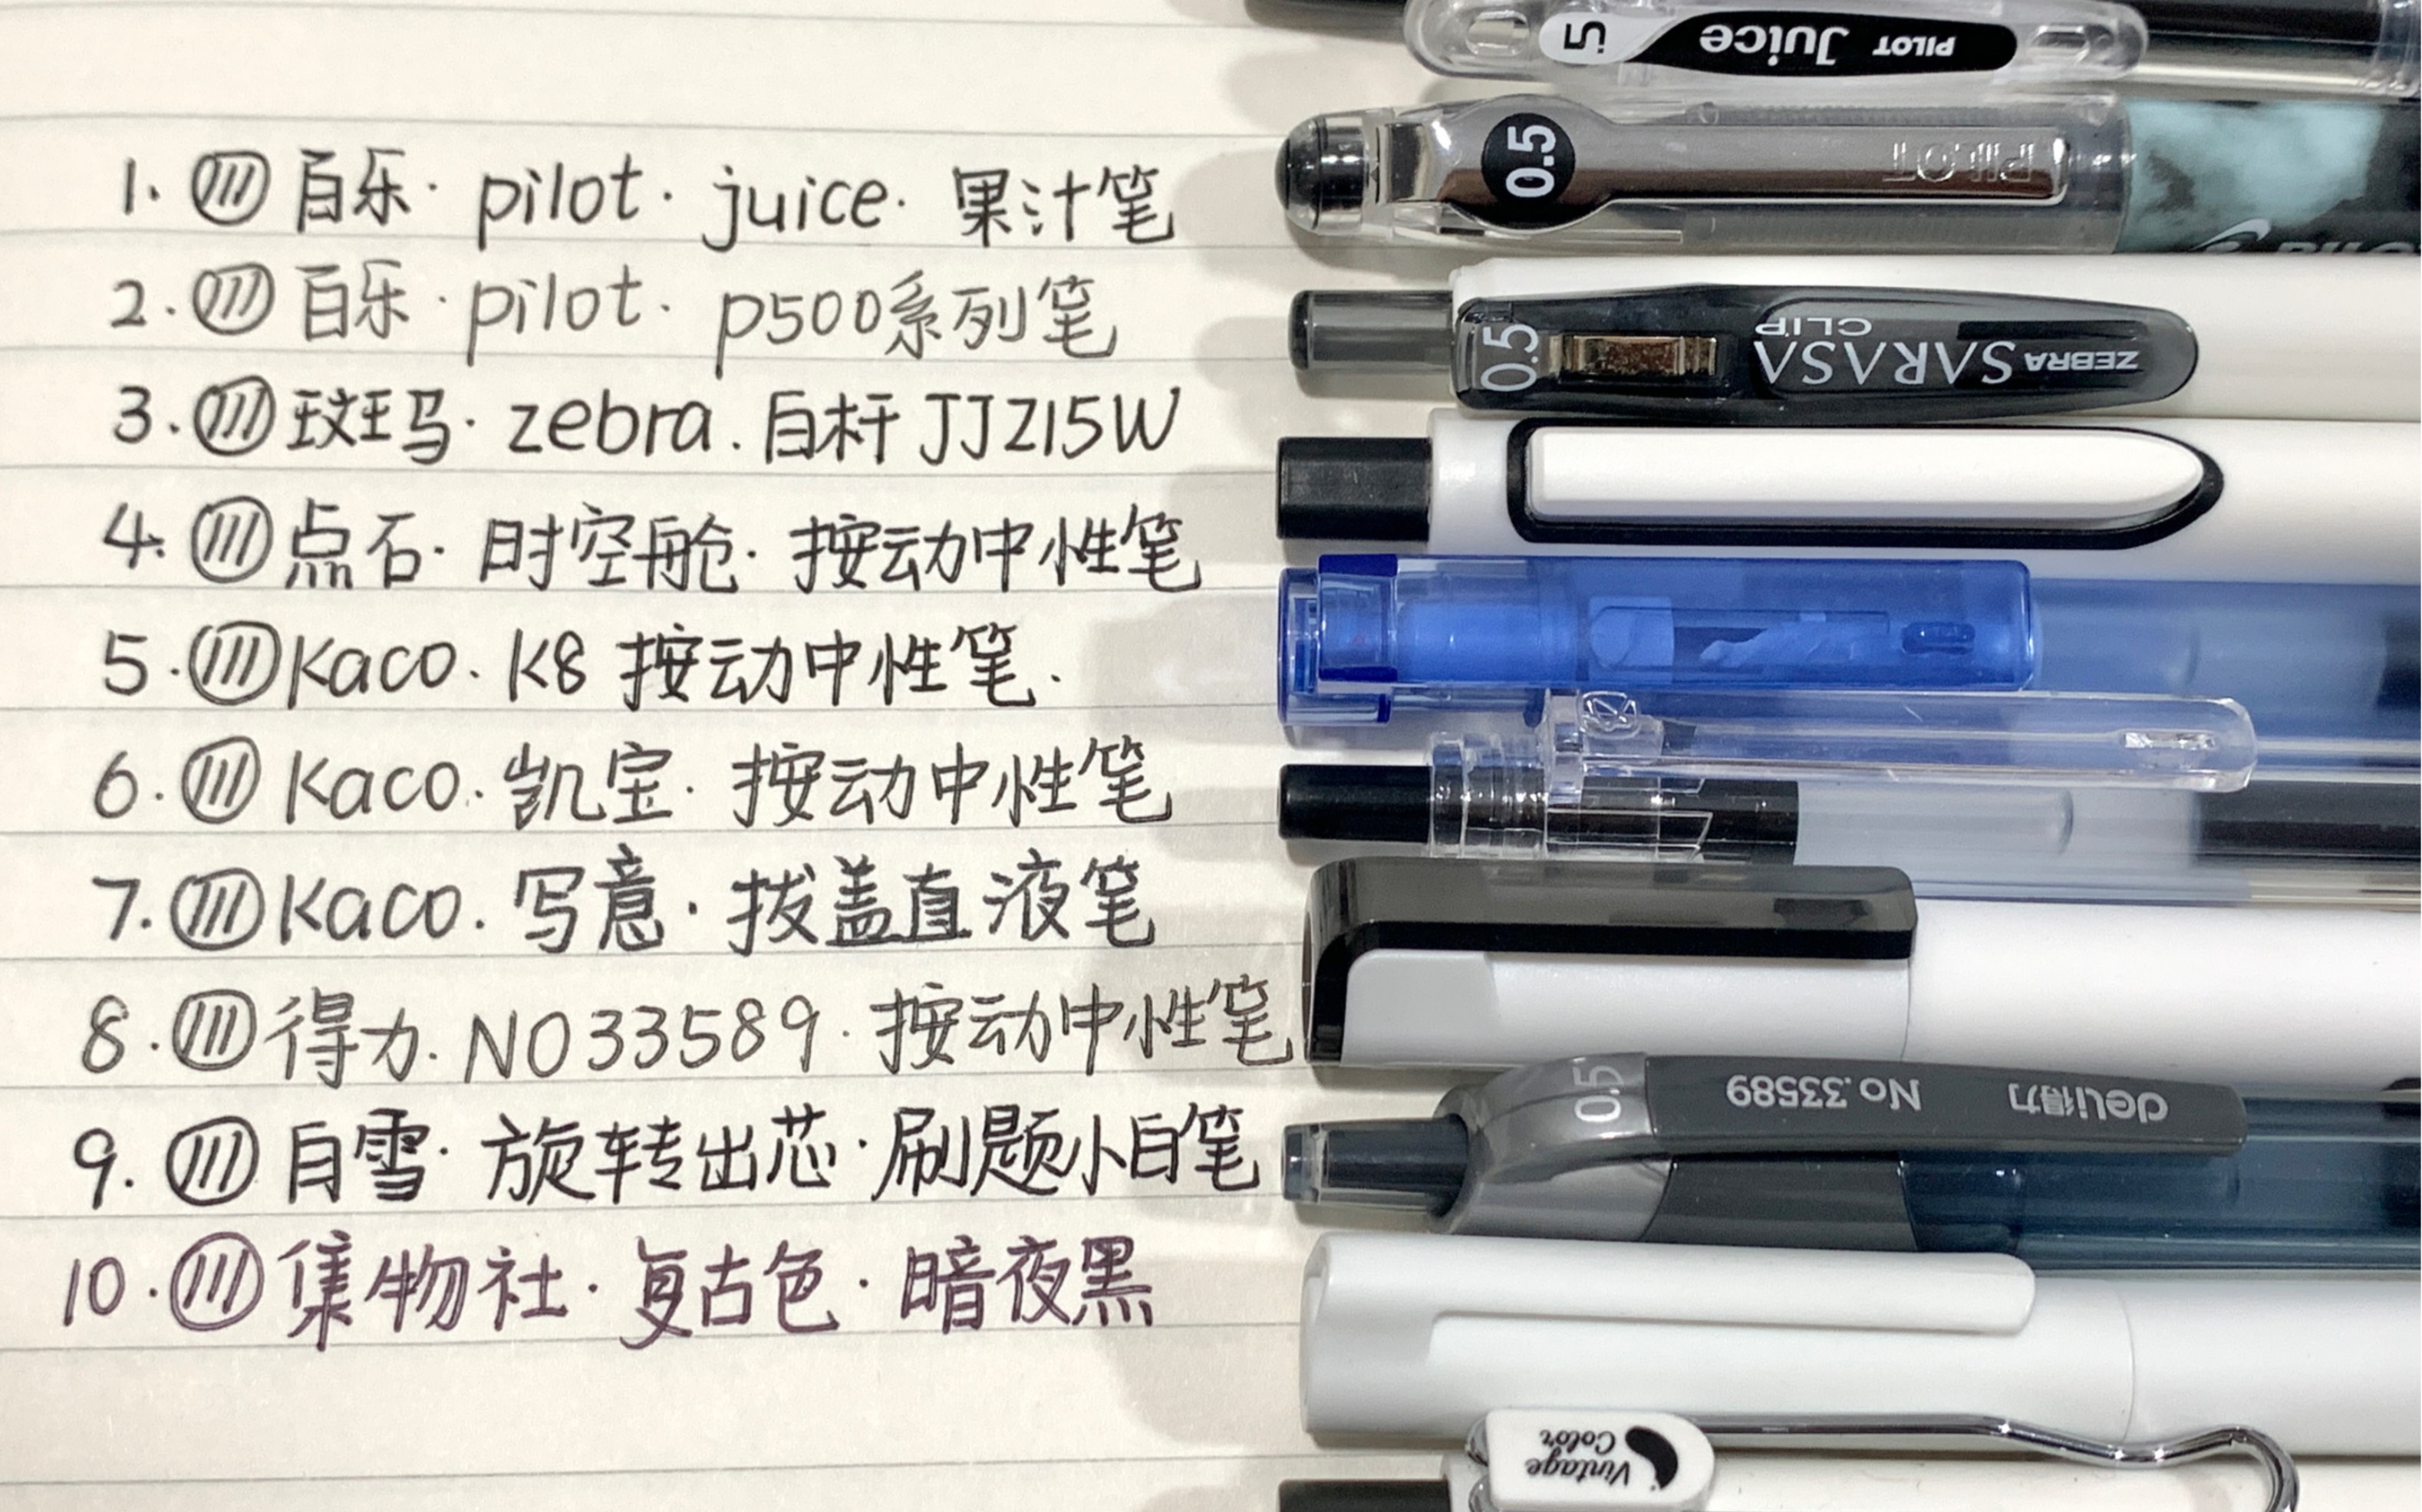 1. 百乐· pilot· juice· 果汁笔
2. 百乐· pilot· p500系列笔
3. 斑马· zebra. 白杆 JJZ15W
4. 点石· 时空舱· 按动中性笔
5. Kaco. K8 按动中性笔.
6. Kaco. 凯宝· 按动中性笔
7. Kaco. 写意· 拔盖直液笔
8. 得力. NO33589· 按动中性笔
9. 白雪· 旋转出芯· 刷题小白笔
10. 集物社· 复古色· 暗夜黑
PILOT Juice
0.5 PILOT
0.5 ZEBRA SARASA CLIP
0.5 deli得力 No.33589
Vintage Color